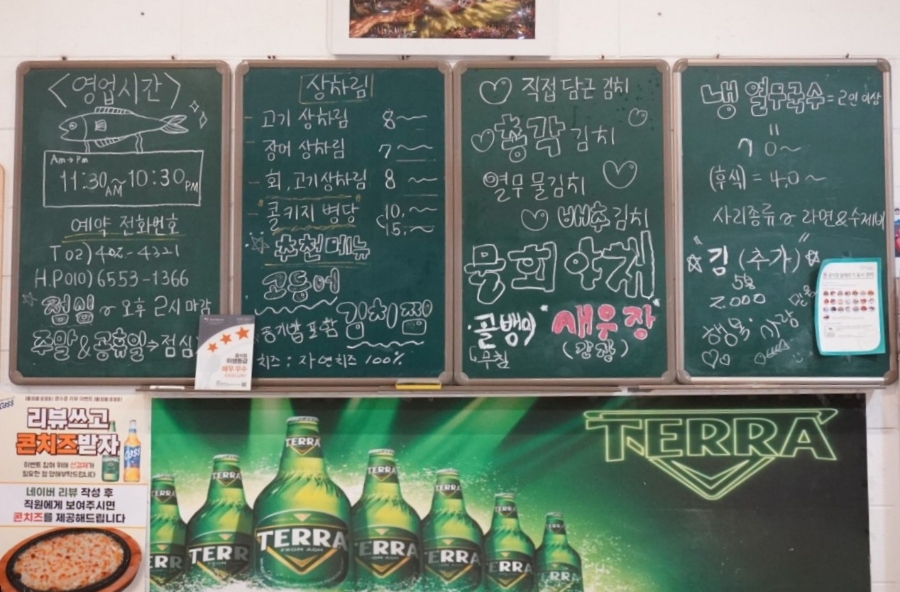 <영업시간>
Am→Pm
11:30AM~10:30PM
예약 전화번호
T 02) 402-4321
H.P 010) 6553-1366
점심 ~ 오후 2시 마감
주말 & 공휴일 → 점심
상차림
고기 상차림 8~
장어 상차림 7~
회, 고기상차림 8~
콜키지 병당 10,~
15,~
추천메뉴
고등어
김치찜
공기밥 포함
치즈 : 자연치즈 100%
매우 우수
직접 담근 김치
총각김치
열무물김치
배추김치
물회 야채
골뱅이
무침
"새우장"
냉 열무국수 = 2인 이상
" 70~
(후식) = 4,0~
사리종류 ~ 라면 & 수제비
"김 (추가)"
2.000
행복
사랑
Cass
리뷰쓰고
콘치즈받자
이벤트 참여 위해 선결제가
필요한 점 양해부탁드립니다
네이버 리뷰 작성 후
직원에게 보여주시면
콘치즈를 제공해드립니다
TERRA
TERRA
TERRA
FROM AGM
TERRA
TERRA
TERRA
TERRA
TERRA